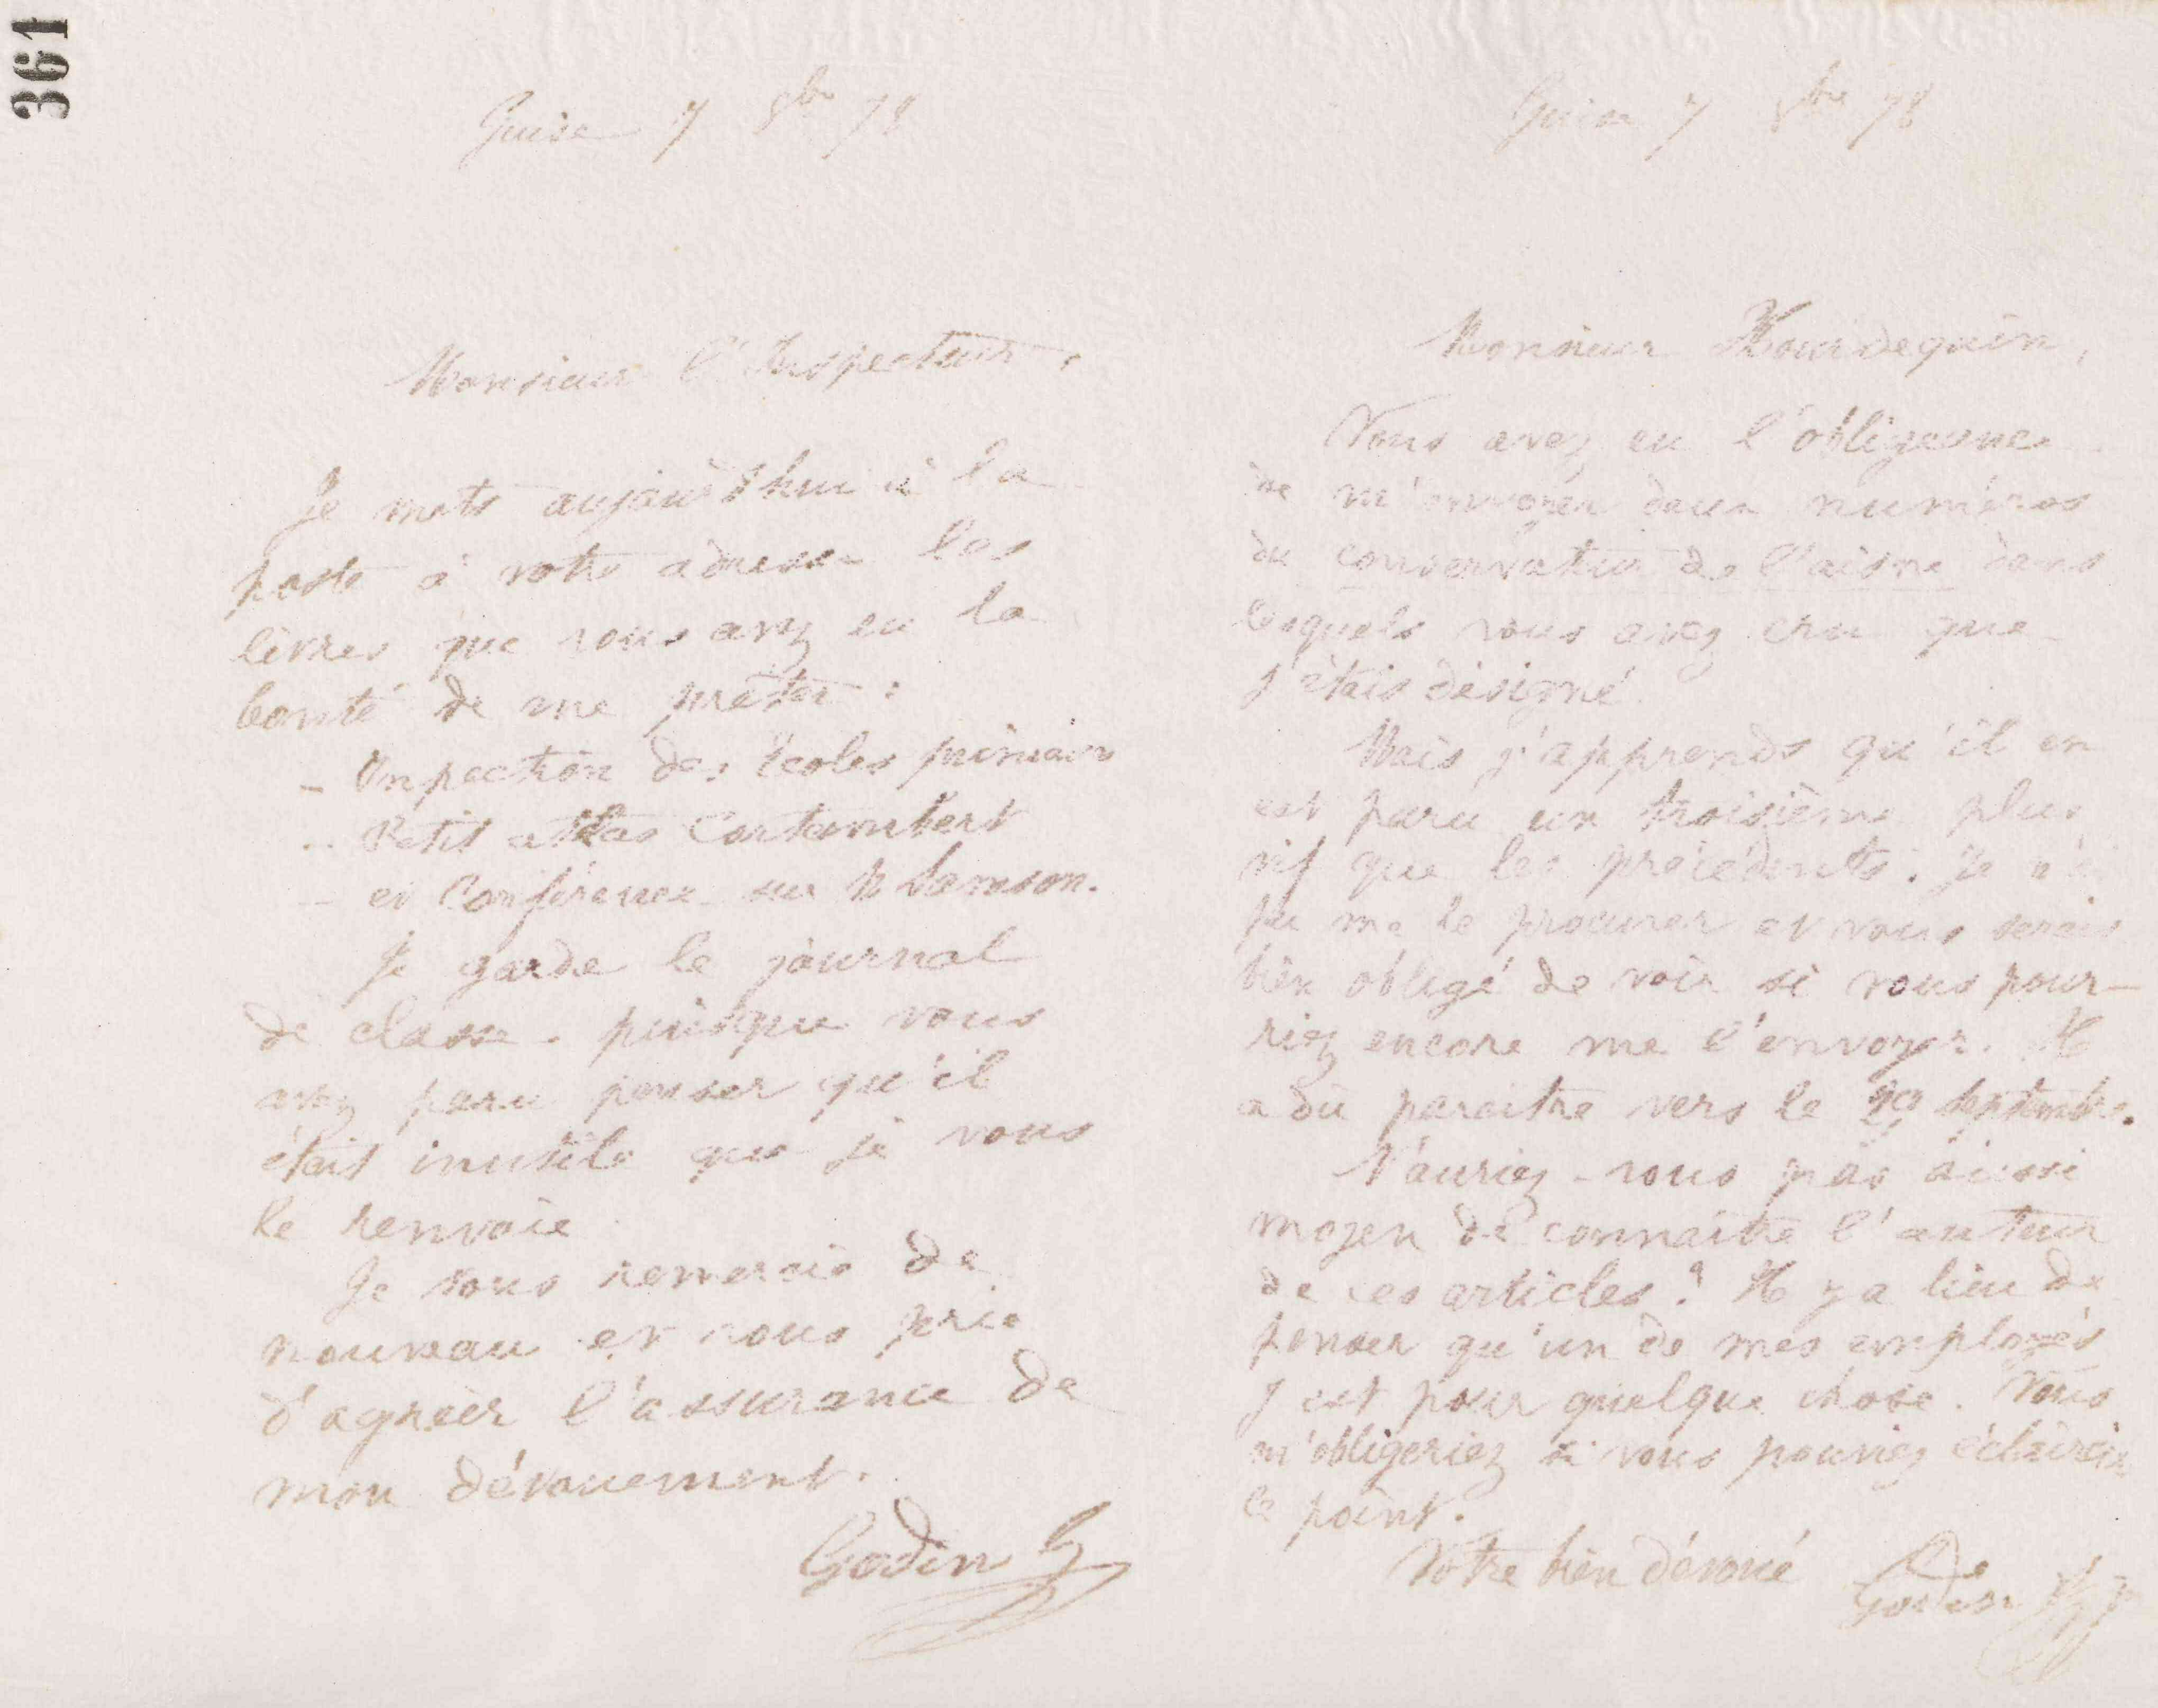 361
Guise 7 8bre 78
Monsieur l'Inspecteur,
Je mets aujourd'hui à la
poste à votre adresse les
livres que vous avez eu la
bonté de me prêter :
- Inspection des Écoles primaires
- Petit atlas Cortambert
- et Conférence sur
Je garde le journal
de classe. puisque vous
avez paru penser qu'il
était inutile que je vous
le renvoie
Je vous remercie de
nouveau et vous prie
d'agréer l'assurance de
mon dévouement.
Godin
Guise 7 8bre 78
Monsieur Hourdequin,
Vous avez eu l'obligeance
de m'envoyer deux numéros
du conservateur de l'aisne dans
lesquels vous avez cru que
j'étais désigné.
Mais j'apprends qu'il en
est paru un troisième plus
vif que les précédents. Je n'ai
pu me le procurer et vous serais
bien obligé de voir si vous pour-
riez encore me l'envoyer. Il
a dû paraitre vers le septembre.
N'auriez-vous pas aussi
moyen de connaitre l'auteur
de ces articles ? Il y a lieu de
penser qu'un de mes employés
y est pour quelque chose. Vous
m'obligeriez si vous pouviez éclaircir
ce point.
Votre bien dévoué Godin